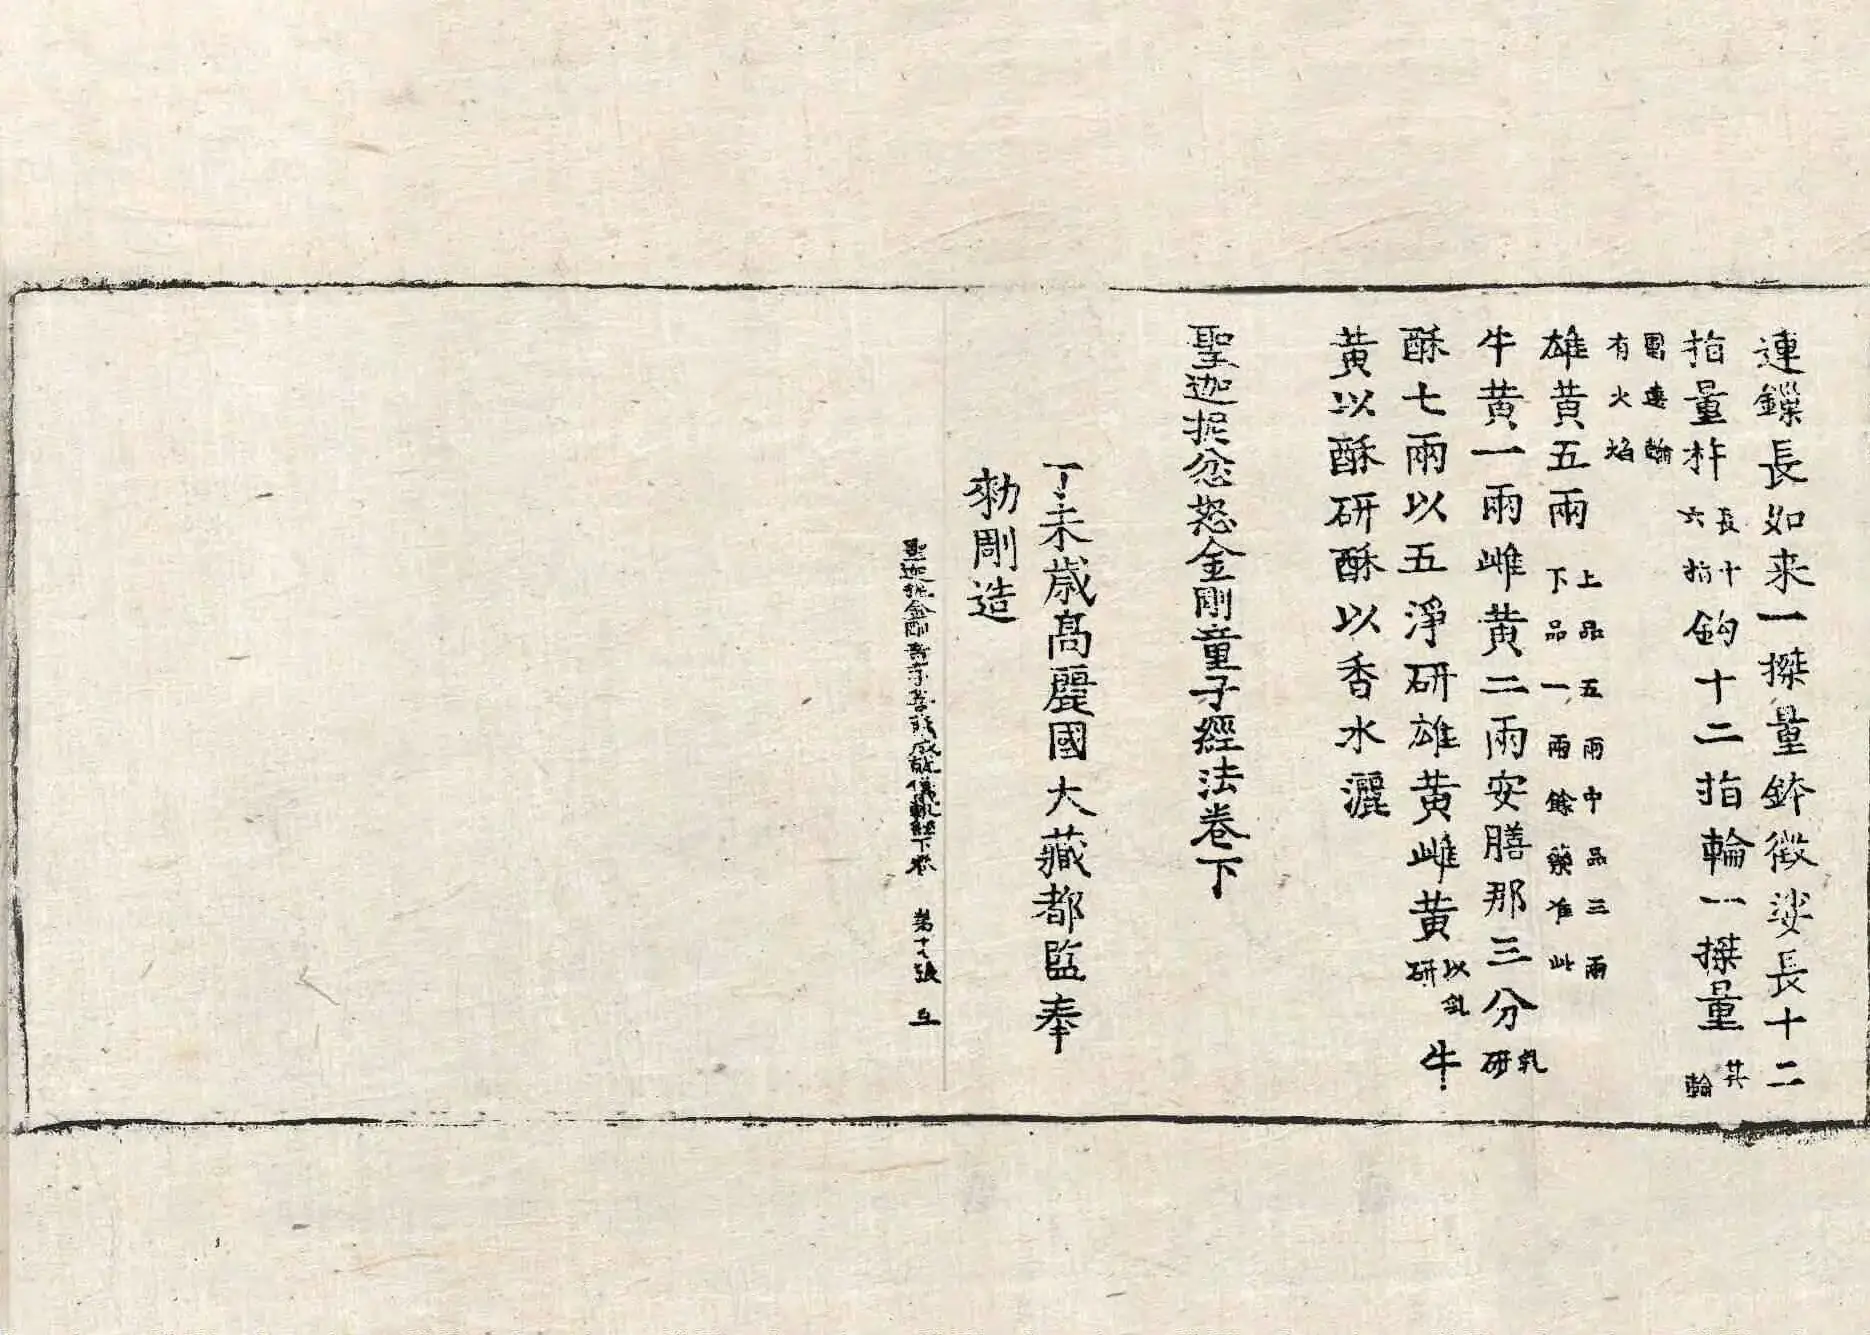 連鏁長如来一搩量鉢徵娑長十二
指量杵長十六指鈎十二指輪一搩量其輪
置連輪有火焰
雄黄五兩上品五兩中品三兩下品一兩餘藥准此
牛黄一兩雌黄二兩安膳那三分乳研
酥七兩以五淨研雄黄雌黄以乳研牛
黄以酥研酥以香水灑
聖迦抳忿怒金剛童子經法卷下
丁未歳髙麗國大藏都監奉
勑剛造
聖迦抳金剛童子菩薩成就儀軌經下卷 第十 張